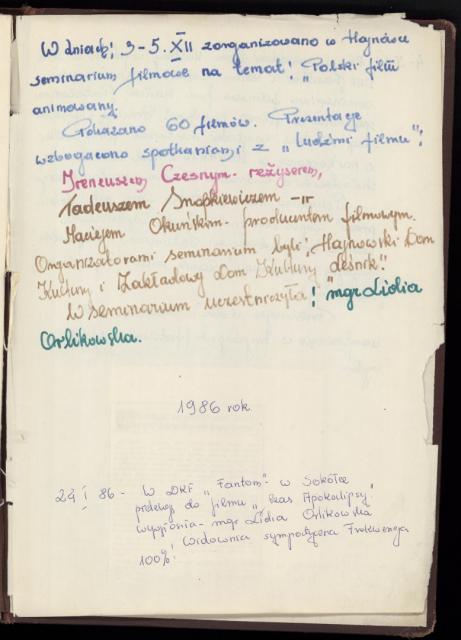 W dniach! 3-5. XII zorganizowano w Hajnówce
seminarium filmowe na temat: "Polski film
animowany.
Pokazano 60 filmów. Prezentacje
wzbogacono spotkaniami z "ludźmi filmu":
Ireneuszem Czesnym - reżyserem,
Tadeuszem -"-
Maciejem Okuńskim - producentem filmowym.
Organizatorami seminarium byli: Hajnowski Dom
Kultury i Zakładowy Dom Kultury "Leśnik".
W seminarium uczestniczyła: mgr Lidia
Orlikowska.
1986 rok
24 I 86 - W DKF "Fantom" w Sokółce
prelekcję do filmu "Czas Apokalipsy"
wygłosiła - mgr Lidia Orlikowska
Widownia sympatyczna Frekwencja
100%!